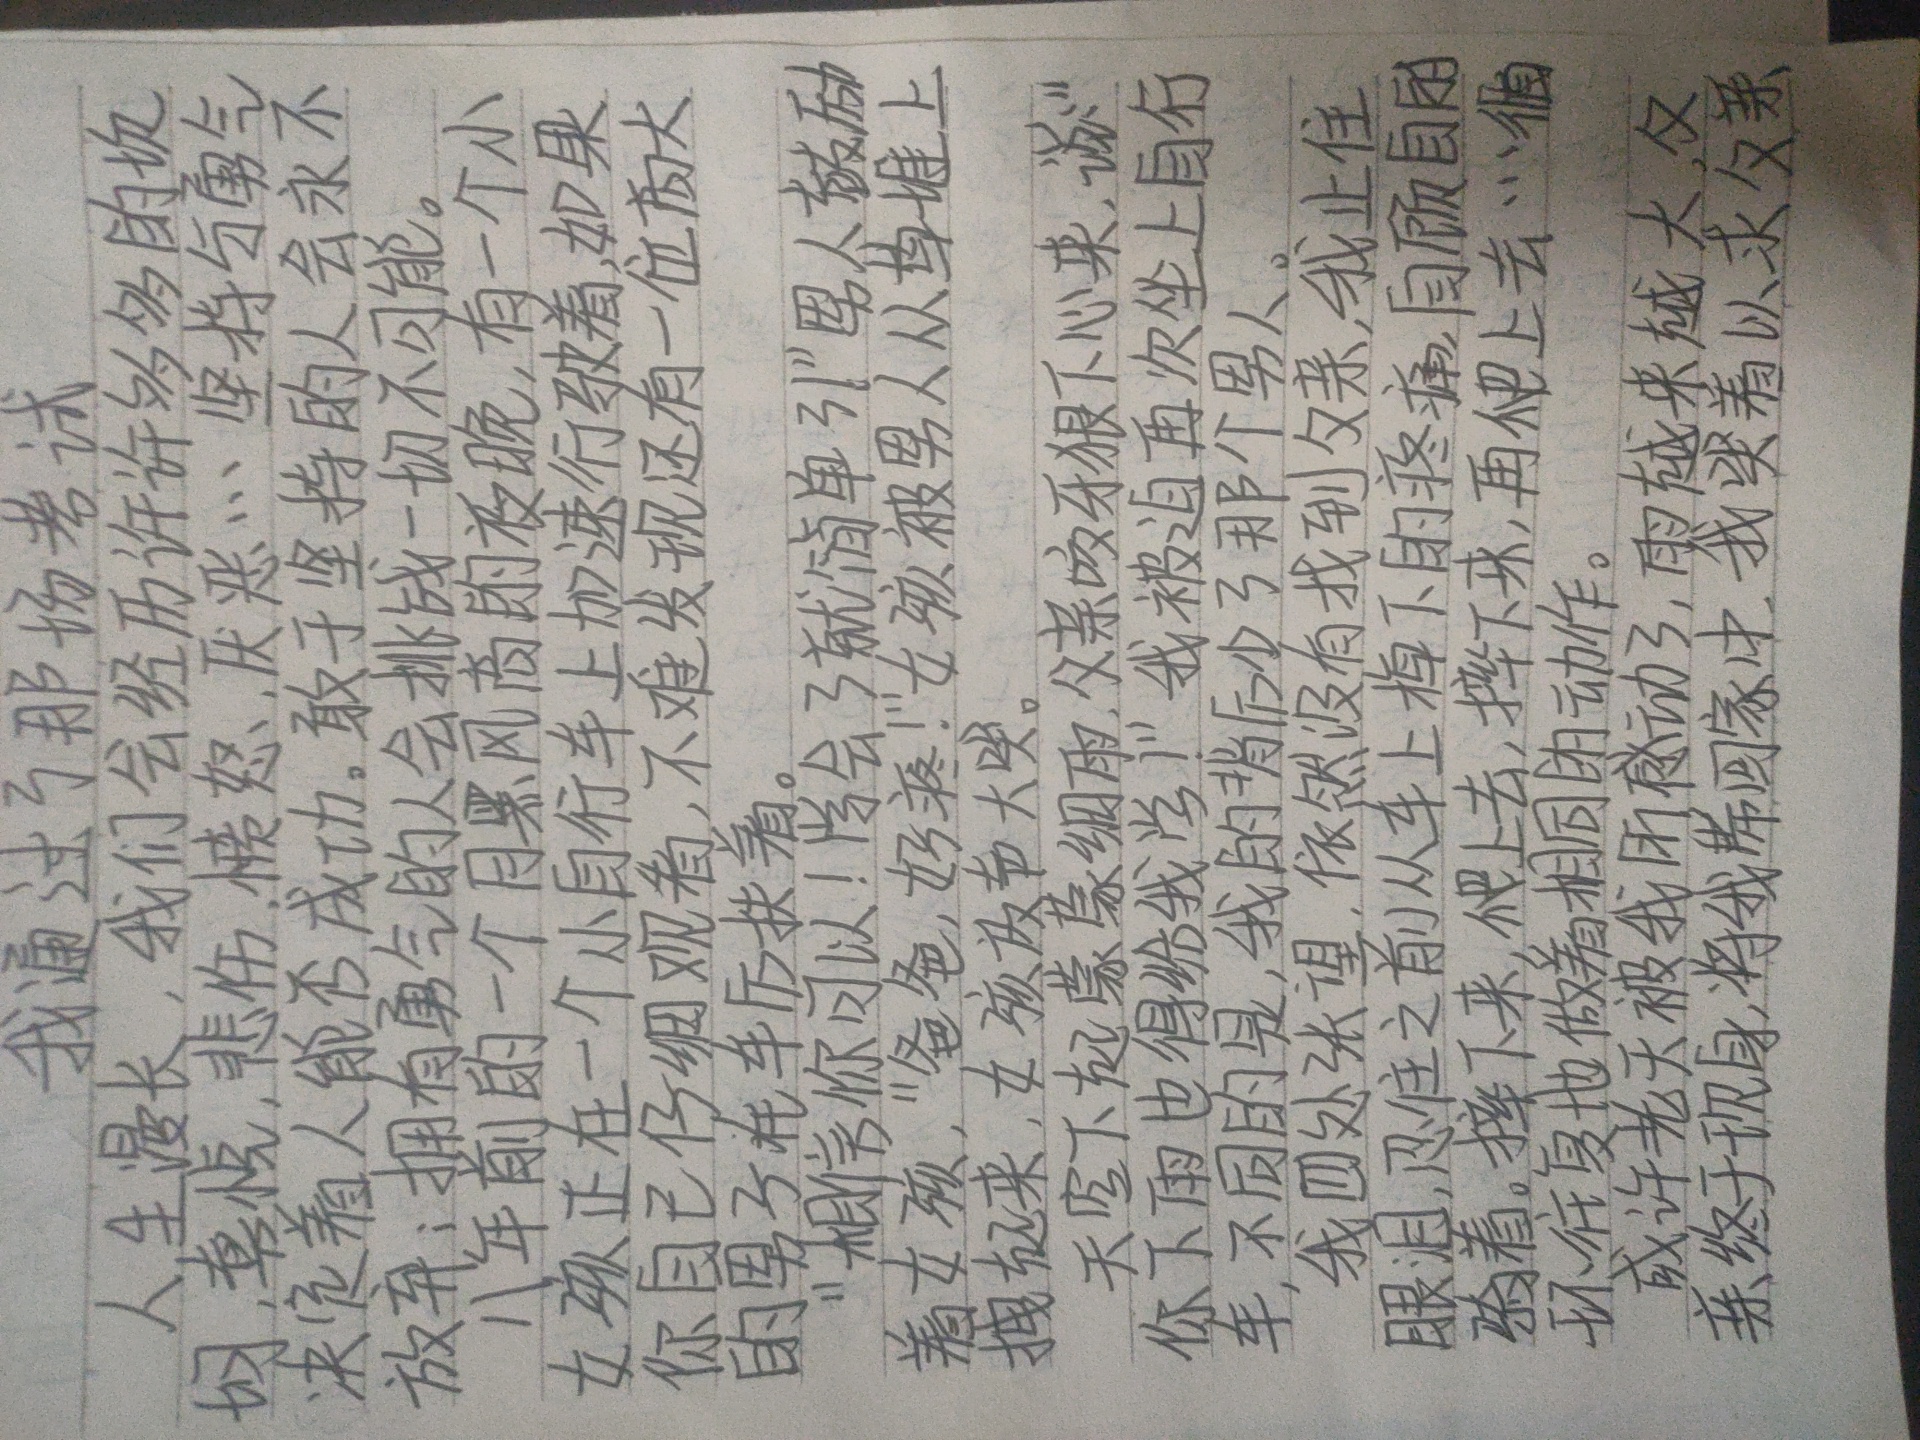 我通过了那场考试
人生漫长，我们会经历许许多多的坎
切，喜悦，悲伤，愤怒，厌恶……坚持与勇气
决定着人能否成功。敢于坚持的人会永不
放弃；拥有勇气的人会挑战一切不可能。
八年前的一个月黑风高的夜晚，有一个小
女孩正在一个小自行车上加速行驶着，如果
你自己仔细观看，不难发现还有一位高大
的男子在车后扶着。
"相信你可以！学会了就简单了！"男人鼓励
着女孩，"爸爸，好疼！"女孩被男人从草堆上
拽起来，女孩放声大哭。
天空下起蒙蒙细雨，父亲咬牙狠下心来，说："
你下雨也得给我学！"我被迫再次坐上自行
车，不同的是，我的背后少了那个男人。
我四处张望，依然没有找到父亲，我止住
眼泪，忍住之前从车上摔下的疼痛，自顾自的
骑着。摔下来，爬上去，摔下来，再爬上去……循
环往复地做着相同的动作。
或许老天被我所感动了，雨越来越大，父
亲终于现身，将我带回家中，我哭着以求父亲